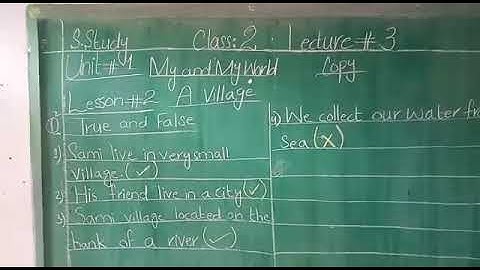 S.Study Class: 2 Lecture # 3
Unit # 1 My and My World Copy
Lesson # 2 A Village
① True and False
1) Sami live in very small
village. (✓)
2) His friend live in a city (✓)
3) Sami village located on the
bank of a river (✓)
4) We collect our water fro
Sea (X)